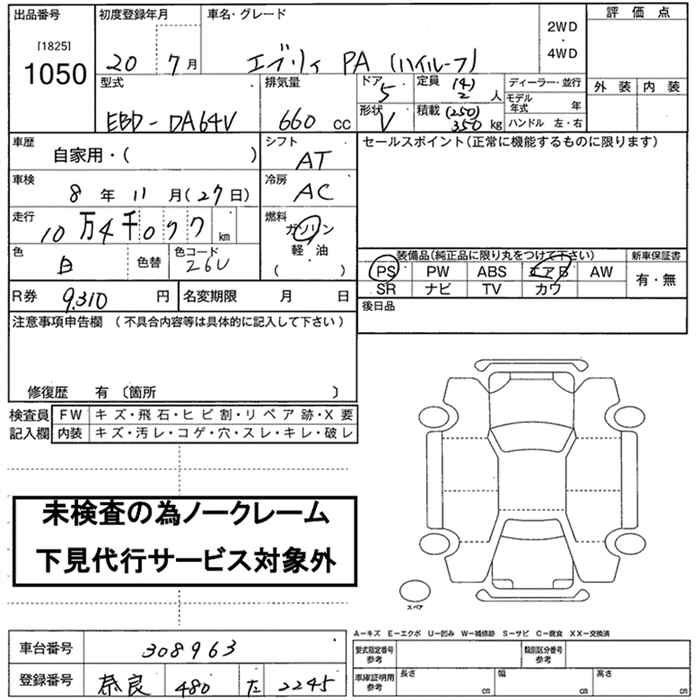 出品番号 初度登録年月 車名・グレード 評価点
[1825]
1050
20 7月 エブリィ PA (ハイルーフ) 2WD・4WD
型式 排気量 ドア 5 定員 (4) 2 人 ディーラー・並行 外装 内装
モデル年式 年
EBD-DA64V 660 CC 形状 V 積載 (250) 350 kg ハンドル 左・右
車歴 自家用・( ) シフト AT セールスポイント(正常に機能するものに限ります)
車検 8年11月(27日) 冷房 AC
走行 10万4千077km 燃料 ガソリン 軽・油 ( )
色 白 色替 色コード 26U 装備品(純正品に限り丸をつけて下さい) 新車保証書
PS PW ABS エアB AW 有・無
SR ナビ TV カワ
R券 9,310 円 名変期限 月 日 後日品
注意事項申告欄 (不具合内容等は具体的に記入して下さい)
修復歴 有 〔箇所 〕
検査員 FW キズ・飛石・ヒビ割・リペア跡・X要
記入欄 内装 キズ・汚レ・コゲ・穴・スレ・キレ・破レ
未検査の為ノークレーム
下見代行サービス対象外
スペア
A-キズ E-エクボ U-凹み W-補修跡 S-サビ C-腐食 XX-交換済
車台番号 308963 型式指定番号 参考 類別区分番号 参考
登録番号 奈良 480 た 2245 車庫証明用 参考 長さ cm 幅 cm 高さ cm